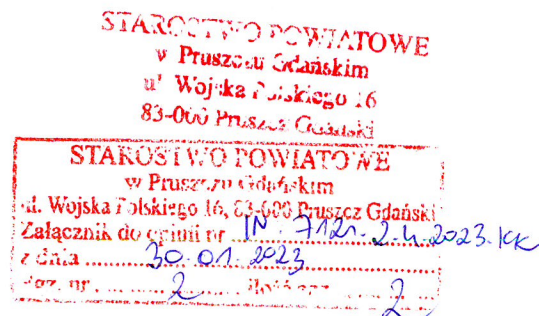 STAROSTWO POWIATOWE
w Pruszczu Gdańskim
ul. Wojska Polskiego 16
83-000 Pruszcz Gdański
STAROSTWO POWIATOWE
w Pruszczu Gdańskim
ul. Wojska Polskiego 16, 83-000 Pruszcz Gdański
Załącznik do opinii nr IN.7121.2.4.2023.KK
z dnia 30.01.2023
egz. nr 2 ilość egz. 2